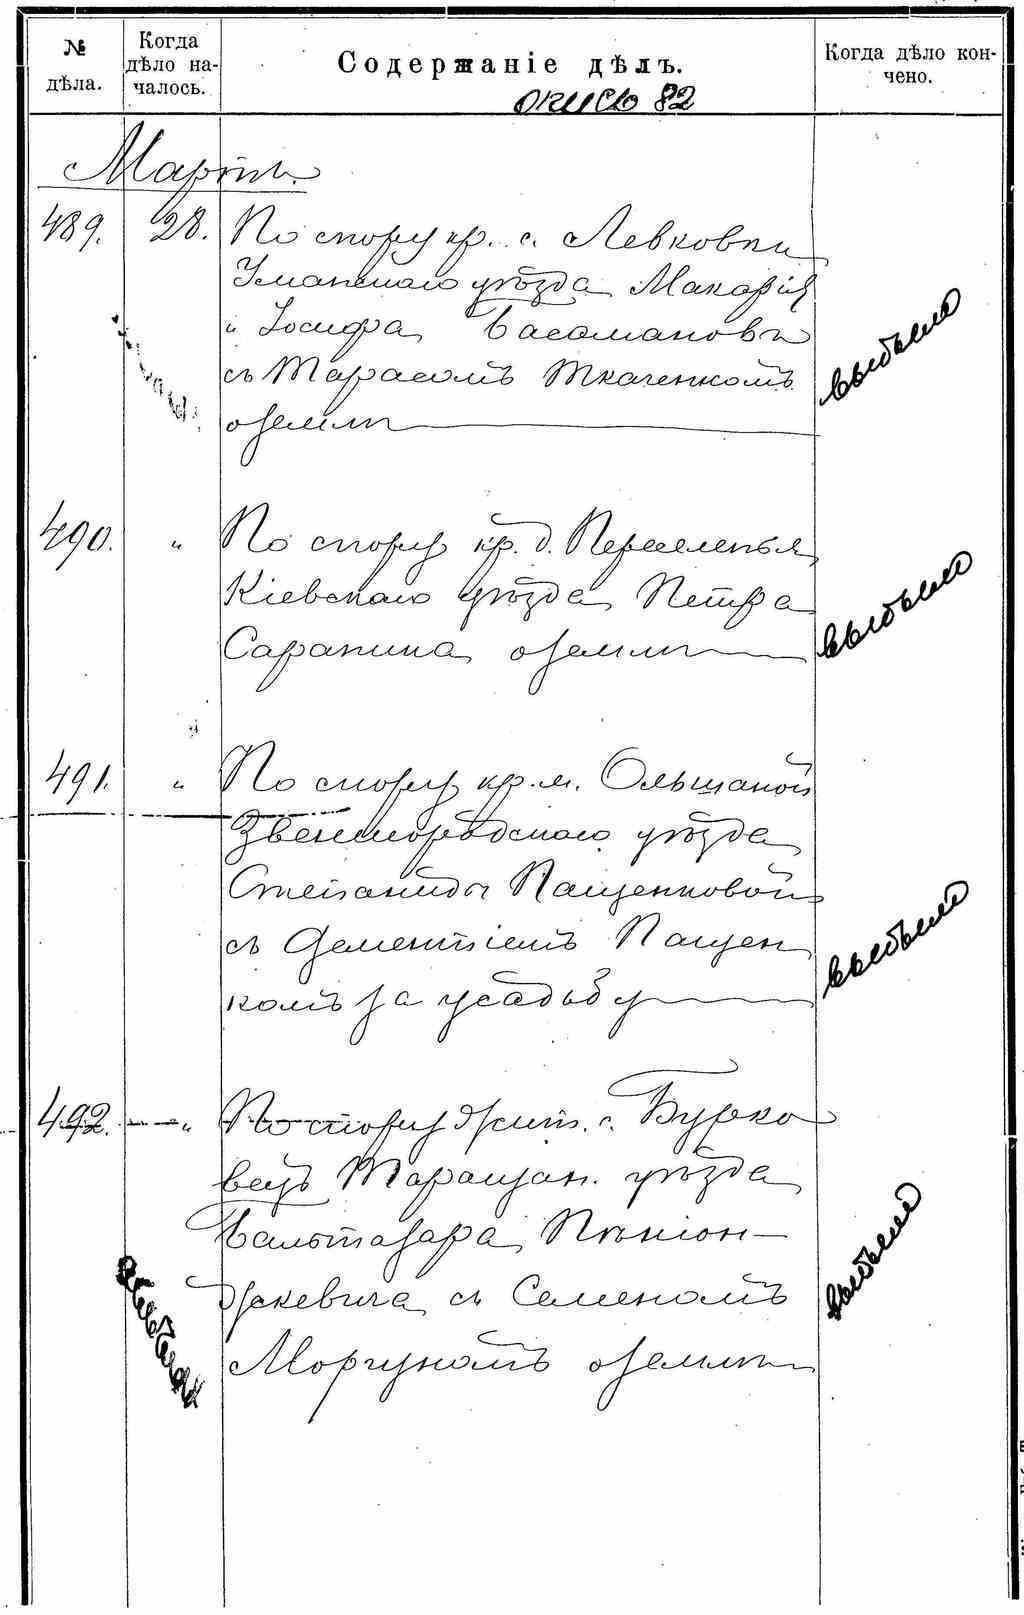 № дѣла.
Когда дѣло началось.
Содержаніе дѣлъ.
Когда дѣло кончено.
опись 82
Мартъ.
489. 28. По спору кр. с. Левковки
Уманскаго уѣзда Макарія
и Іосифа Басомановъ
съ Тарасомъ Ткаченкомъ
о землѣ
выбыло
490. " По спору кр. д. Переселенья
Кіевскаго уѣзда Петра
Сарапина о землѣ
выбыло
491. " По спору кр. м. Ольшаной
Звенигородскаго уѣзда
Степаниды Пащенковой
съ Дементіемъ Пащен
комъ за усадьбу
выбыло
492. " По спору жит. с. Бурко
вецъ Таращан. уѣзда
Бальтазара
джевича съ Семеномъ
Моргуномъ о землѣ
выбыло